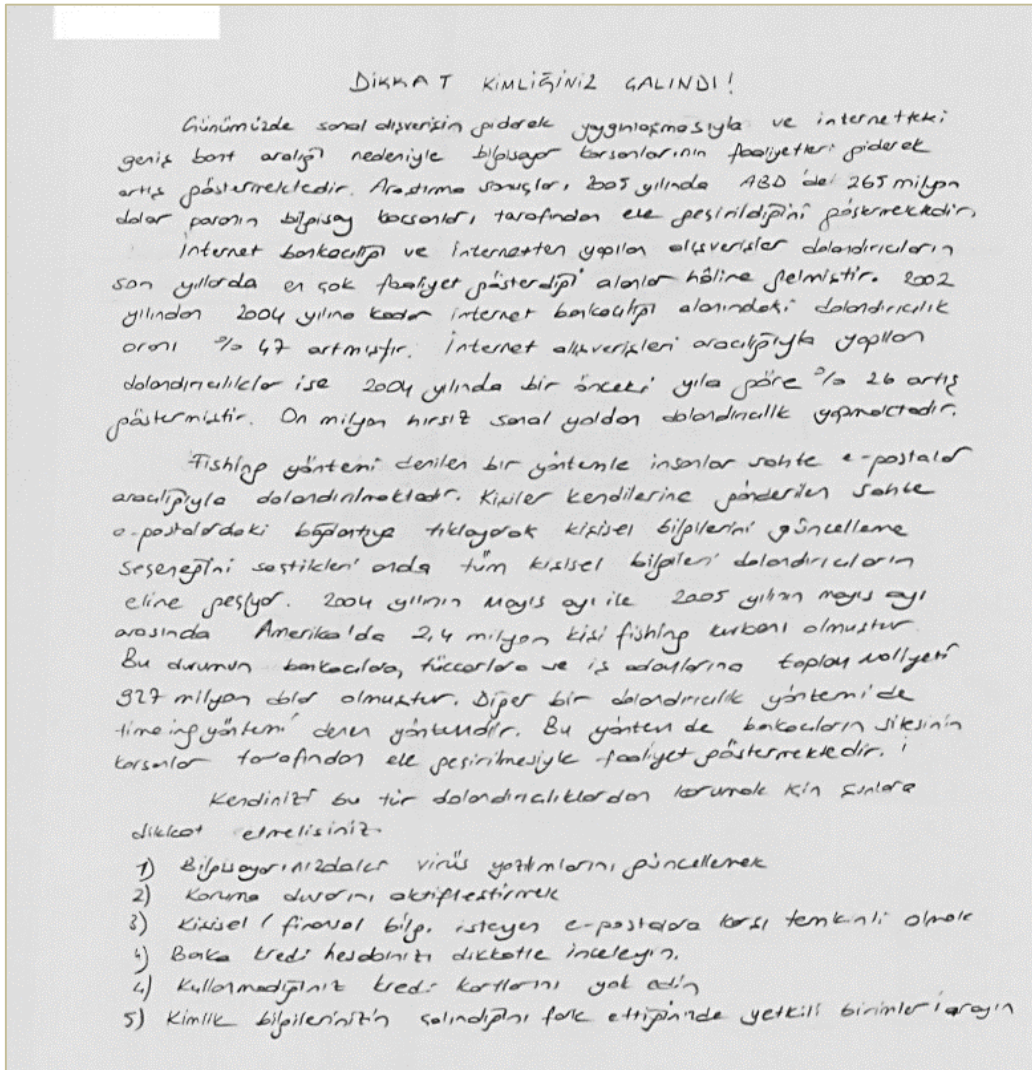 DİKKAT KİMLİĞİNİZ ÇALINDI!
Günümüzde sanal alışverişin giderek yaygınlaşmasıyla ve internetteki
geniş bant aralığı nedeniyle bilgisayar korsanlarının faaliyetleri giderek
artış göstermektedir. Araştırma sonuçları, 2005 yılında ABD'de 265 milyon
dolar paranın bilgisay korsanları, tarafından ele geçirildiğini göstermektedir.
İnternet bankacılığı ve internetten yapılan alışverişler dolandırıcıların
son yıllarda en çok faaliyet gösterdiği alanlar hâline gelmiştir. 2002
yılından 2004 yılına kadar internet bankacılığı alanındaki dolandırıcılık
oranı %47 artmıştır. İnternet alışverişleri aracılığıyla yapılan
dolandırıcılıklar ise 2004 yılında bir önceki yıla göre %26 artış
göstermiştir. On milyon hırsız sanal yoldan dolandırıcılık yapmaktadır.
Fishing yöntemi denilen bir yöntemle insanlar sahte e-postalar
aracılığıyla dolandırılmaktadır. Kişiler kendilerine gönderilen sahte
e-postalardaki bağlantıya tıklayarak kişisel bilgilerini güncelleme
seçeneğini seçtikleri anda tüm kişisel bilgileri dolandırıcıların
eline geçiyor. 2004 yılının Mayıs ayı ile 2005 yılının mayıs ayı
arasında Amerika'da 2,4 milyon kişi fishing kurbanı olmuştur
Bu durumun bankacılara, tüccarlara ve iş adaylarına toplam maliyeti
927 milyon dolar olmuştur. Diğer bir dolandırıcılık yöntemi de
yöntemi denen yöntemdir. Bu yöntem de bankacıların sitesinin
korsanlar tarafından ele geçirilmesiyle faaliyet göstermektedir.
Kendinizi bu tür dolandırıcılıklardan korumak için şunlara
dikkat etmelisiniz.
1) Bilgisayarınızdaki virüs yazılımlarını güncellemek
2) Koruma duvarını aktifleştirmek
3) Kişisel / finansal bilgi isteyen e-postalara karşı temkinli olmak
4) Banka kredi hesabınızı dikkatle inceleyin.
4) Kullanmadığınız kredi kartlarını yok edin
5) Kimlik bilgilerinizin çalındığını fark ettiğinizde yetkili birimleri arayın